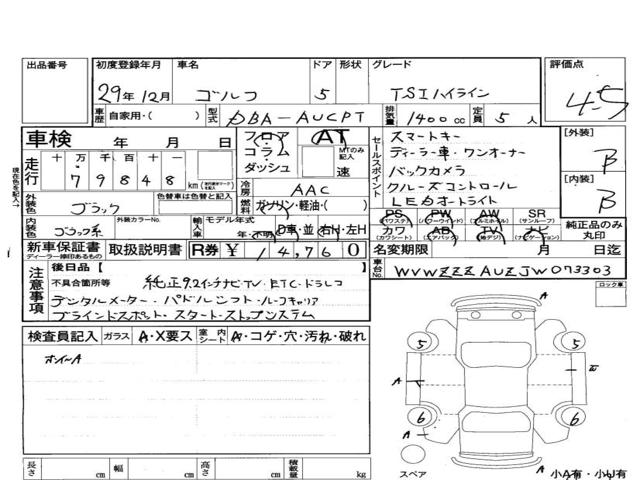 出品番号 初度登録年月 車名 ドア 形状 グレード 評価点
29年12月 ゴルフ 5 TSIハイライン 4.5
車歴 自家用・( ) 型式 DBA-AUCPT 排気量 1400cc 定員 5人
車検 年 月 日 フロア コラム ダッシュ AT MTのみ記入 速
走行 十万 千 百 十 一 79848 km
冷房 AAC
外装色 ブラック 色替車は色替と記入
燃料 ガソリン・軽油・( )
内装色 ブラック系 外装カラーNo. 輸入車 モデル年式 年・不明 D車・並 右H・左H
セールスポイント
スマートキー
ディーラー車・ワンオーナー
バックカメラ
クルーズコントロール
LEDオートライト
[外装] B
[内装] B
PS (パワステ) PW (パワーウインド) AW (アルミホイル) SR (サンルーフ)
カワ (カワシート) AB (エアバッグ) TV (地デジ) ナビ (ナビゲーション)
純正品のみ丸印
新車保証書 ディーラー捺印あるもの 取扱説明書 R券 ¥ 14760
名変期限 月 日迄
車台No. WVWZZZAUZJW073303
注意事項
後日品【 】
不具合箇所等 純正9.2インチナビTV・ETC・ドラレコ
デジタルメーター・パドルシフト・ルーフキャリア
ブラインドスポット・スタート・ストップシステム
ロック車
検査員記入 ガラス A・X要ス 室内シート A・コゲ・穴・汚れ・破れ
A
5 5
A
6 6
A
A
スペア 小A有・小U有
長さ cm 幅 cm 高さ cm 積載量 kg
現在色を記入→